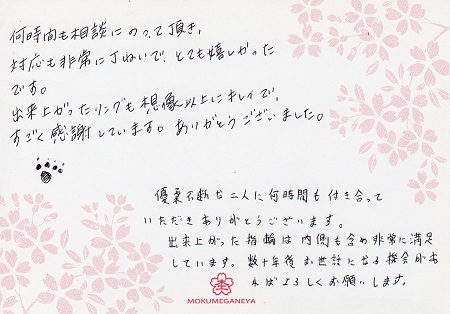 何時間も相談にのって頂き、
対応も非常に丁ねいで、とても嬉しかった
です。
出来上がったリングも想像以上にキレイで、
すごく感謝しています。ありがとうございました。
優柔不断な二人に何時間も付き合って
いただきありがとうございます。
出来上がった指輪は内側も含め非常に満足
しています。数十年後お世話になる機会があ
ればよろしくお願いします。
MOKUMEGANEYA